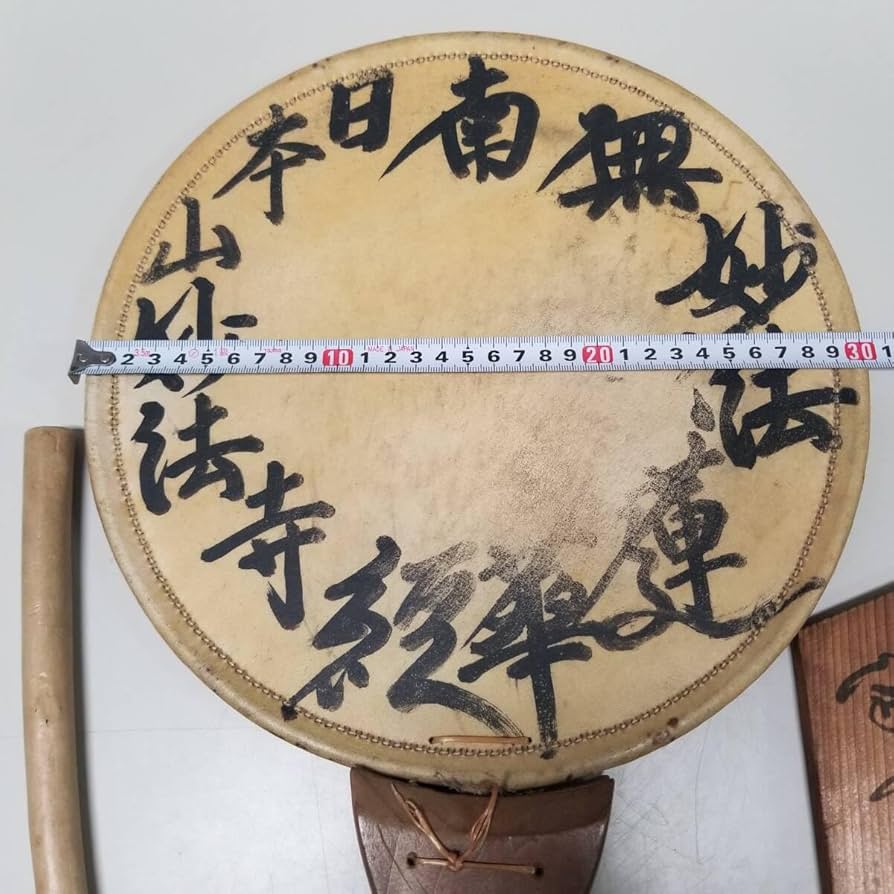 南無妙法蓮華経
日本山妙法寺
2 3 4 5 6 7 8 9 10 1 2 3 4 5 6 7 8 9 20 1 2 3 4 5 6 7 8 9 30 1
3.5m
MADE IN JAPAN